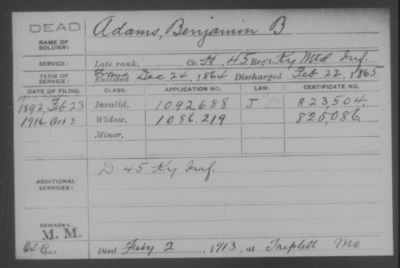 DEAD
NAME OF SOLDIER: Adams, Benjamin B
SERVICE: Late rank, Co. H, 45 Reg't Ky Mtd Inf.
TERM OF SERVICE: Enlisted Dec 24, 1864 Discharged Feb 22, 1865
DATE OF FILING. CLASS. APPLICATION NO. LAW. CERTIFICATE NO.
1892, Feb 23 Invalid, 1092688 J 823,504
1916 Oct Widow, 1086219 826,086
Minor,
ADDITIONAL SERVICES: D 45 Ky Inf.
REMARKS:
M. M.
Died July 2, 1913, at Triplett Mo